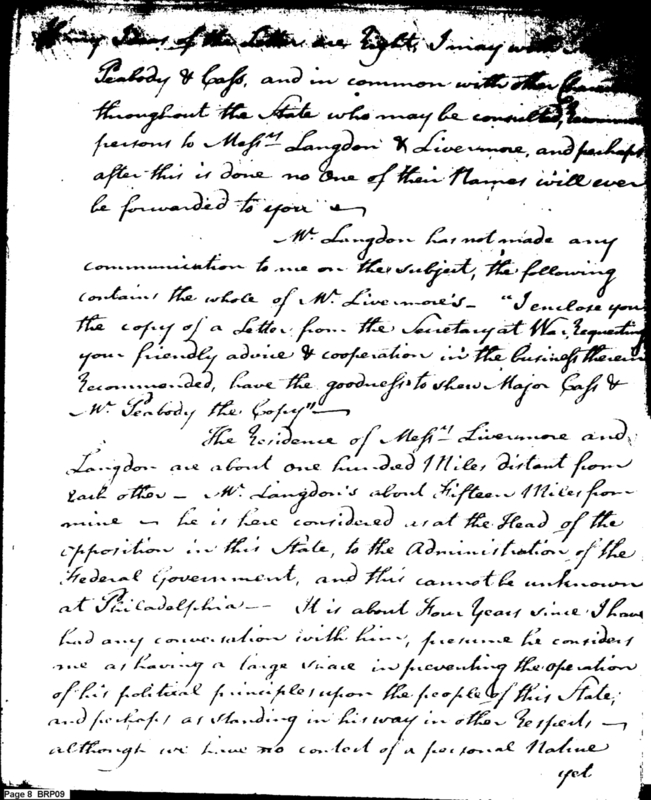 my Ideas of the Letter are Right, I may with
Peabody & Cass, and in common with other
throughout the State who may be consulted,
persons to Messrs Langdon & Livermore, and perhaps
after this is done no One of their Names will ever
be forwarded to you —
Mr. Langdon has not made any
communication to me on the subject, the following
contains the whole of Mr. Livermore's — "I enclose you
the copy of a Letter from the Secretary at War, Requesting
your friendly advice & cooperation in the business therein
Recommended, have the goodness to shew Major Cass &
Mr. Peabody the Copy" —
The Residence of Messrs Livermore and
Langdon are about one hundred Miles distant from
each other — Mr. Langdon's about Fifteen Miles from
mine — he is here considered as at the Head of the
opposition in this State, to the Administration of the
Federal Government, and this cannot be unknown
at Philadelphia — It is about Four Years since I have
had any conversation with him, presume he considers
me as having a large share in preventing the operation
of his political principles upon the people of this State,
and perhaps as standing in his way in other Respects —
although we have no contest of a personal Nature
yet
Page 8 BRP09